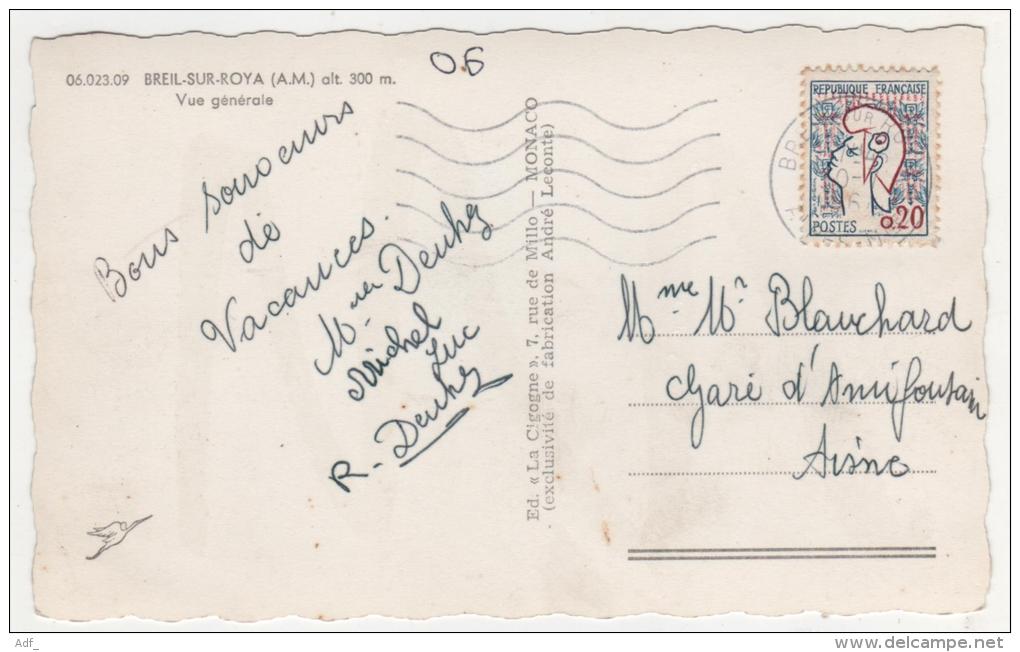 06.023.09 BREIL-SUR-ROYA (A.M.) alt. 300 m.
Vue générale
06
Bons souvenirs
de
Vacances.
Michel
Luc
R-
Ed. « La Cigogne », 7, rue de Millo — MONACO
(exclusivité de fabrication André Leconte)
REPUBLIQUE FRANÇAISE
0.20
POSTES
Mme Mr Blanchard
Gare d'
Aisne
Adf_
www.delcampe.net